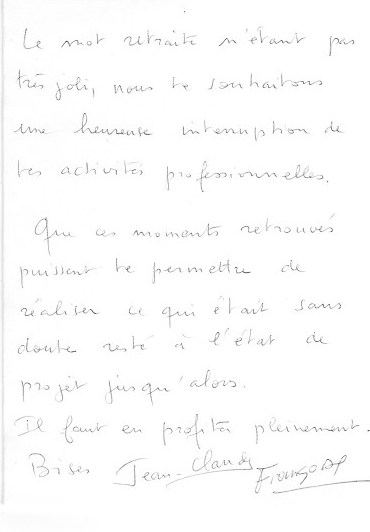 Le mot retraite n'étant pas
très joli, nous te souhaitons
une heureuse interruption de
tes activités professionnelles.
Que ces moments retrouvés
puissent te permettre de
réaliser ce qui était sans
doute resté à l'état de
projet jusqu'alors.
Il faut en profiter pleinement.
Bises Jean-Claude